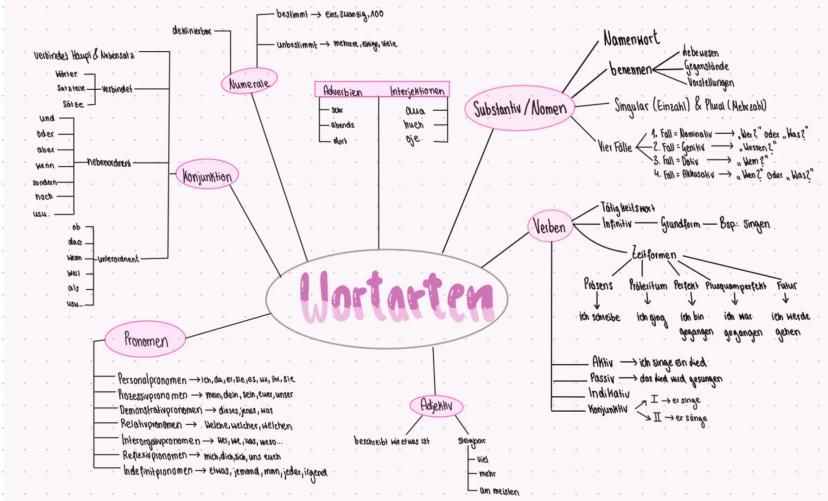 Wortarten
Numerale
deklinierbar
bestimmt → eins, zwanzig, 100
unbestimmt → mehrere, einige, viele
Adverbien
sehr
abends
dort
Interjektionen
aua
huch
oje
Substantiv/Nomen
Namenwort
benennen
Lebewesen
Gegenstände
Vorstellungen
Singular (Einzahl) & Plural (Mehrzahl)
Vier Fälle
1. Fall = Nominativ → „Wer?" oder „Was?"
2. Fall = Genitiv → „Wessen?"
3. Fall = Dativ → „Wem?"
4. Fall = Akkusativ → „Wen?" oder „Was?"
Konjunktion
verbindet Haupt & Nebensatz
verbindet
Wörter
Satzteile
Sätze
nebenordnent
und
oder
aber
denn
sondern
noch
usw.
unterordnent
ob
dass
wenn
weil
als
usw...
Verben
Tätigkeitswort
Infinitiv — Grundform — Bsp: singen
Zeitformen
Präsens
ich schreibe
Präteritum
ich ging
Perfekt
ich bin
gegangen
Plusquamperfekt
ich war
gegangen
Futur
ich werde
gehen
Aktiv → ich singe ein Lied
Passiv → das Lied wird gesungen
Indikativ
Konjunktiv
I → er singe
II → er sänge
Pronomen
Personalpronomen → ich, du, er, sie, es, wir, ihr, sie
Prozessivpronomen → mein, dein, sein, euer, unser
Demonstrativpronomen → dieses, jenes, was
Relativpronomen → welche, welcher, welchen
Interorgativpronomen → wer, wie, was, weso...
Reflexivpronomen → mich, dich, sich, uns euch
Indefinitpronomen → etwas, jemand, man, jeder, irgend
Adjektiv
beschreibt wie etwas ist
steigbar
viel
mehr
am meisten